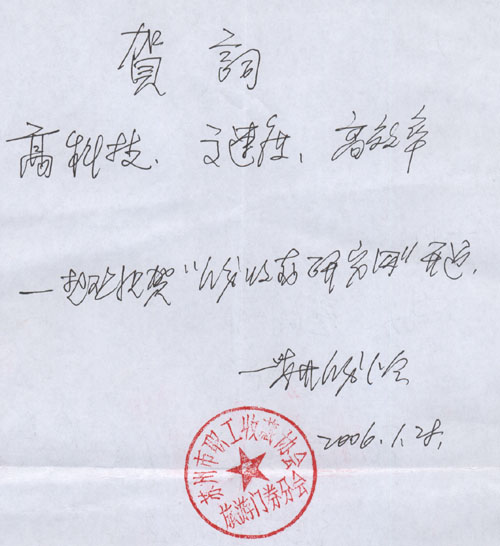 賀 詞
高科技、速度、高效率
—热烈祝贺“门券收藏研究网”开通.
—苏州门券分会
2006.1.28.
苏州市职工收藏协会
旅游门券分会